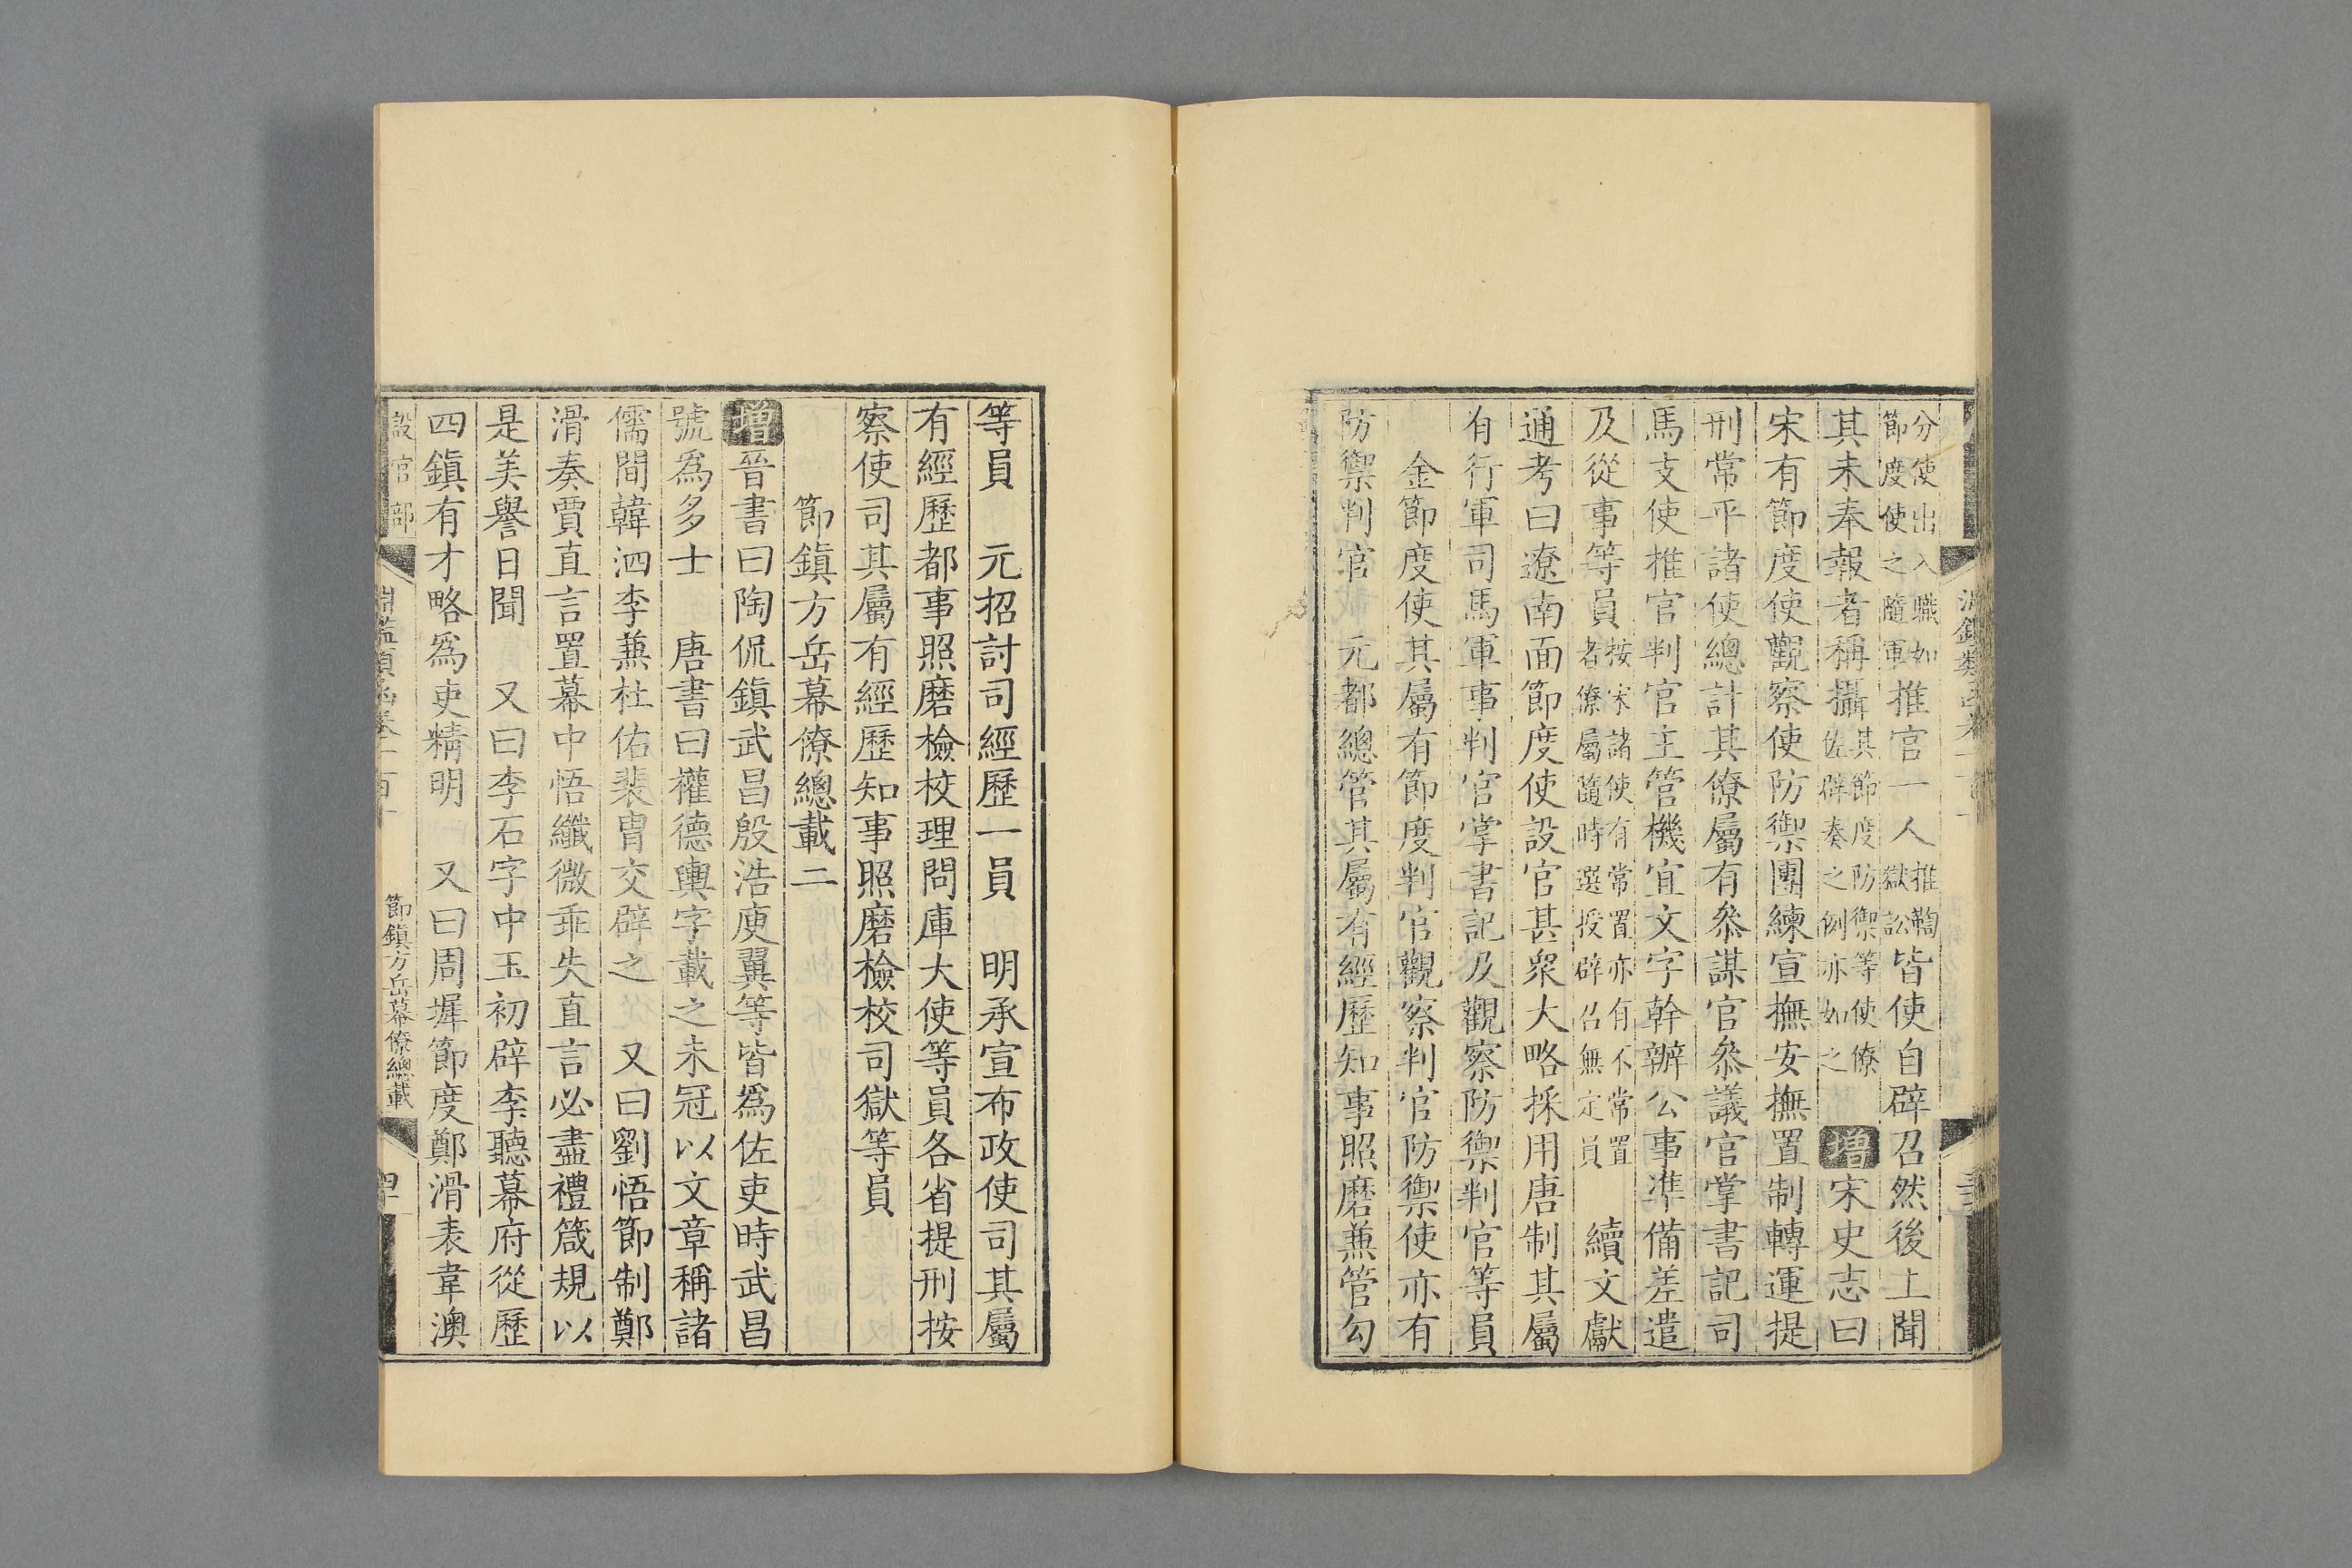 分使出入職如節度使之隨軍推官一人推鞫獄訟皆使自辟召然後上聞
其未奉報者稱攝其節度防禦等使僚佐辟奏之例亦如之 增宋史志曰
宋有節度使觀察使防禦團練宣撫安撫置制轉運提
刑常平諸使總計其僚屬有叅謀官叅議官掌書記司
馬支使推官判官主管機宜文字幹辦公事準備差遣
及從事等員按宋諸使有常置亦有不常置者僚屬隨時選授辟召無定員 續文獻
通考曰遼南面節度使設官甚衆大略採用唐制其屬
有行軍司馬軍事判官掌書記及觀察防禦判官等員
金節度使其屬有節度判官觀察判官防禦使亦有
防禦判官 元都總管其屬有經歷知事照磨兼管勾
等員 元招討司經歷一員 明承宣布政使司其屬
有經歷都事照磨檢校理問庫大使等員各省提刑按
察使司其屬有經歷知事照磨檢校司獄等員
節鎮方岳幕僚總載二
增晉書曰陶侃鎮武昌殷浩庾翼等皆爲佐吏時武昌
號爲多士 唐書曰權德輿字載之未冠以文章稱諸
儒間韓洄李兼杜佑裴胄交辟之 又曰劉悟節制鄭
滑奏賈直言置幕中悟纖微乖失直言必盡禮箴規以
是美譽日聞 又曰李石字中玉初辟李聽幕府從歷
四鎮有才略爲吏精明 又曰周墀節度鄭滑表韋澳
設官部
節鎮方岳幕僚總載